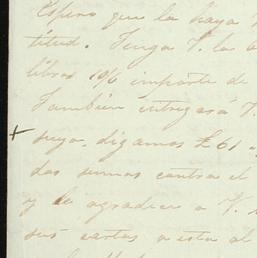 Espero que la haya
titud. Tenga V. la
libras 19/6 importe de
También entregará V.
suya, digamos £61
dos sumas contra el
y lo agradecer a V.
sus cartas a esta al